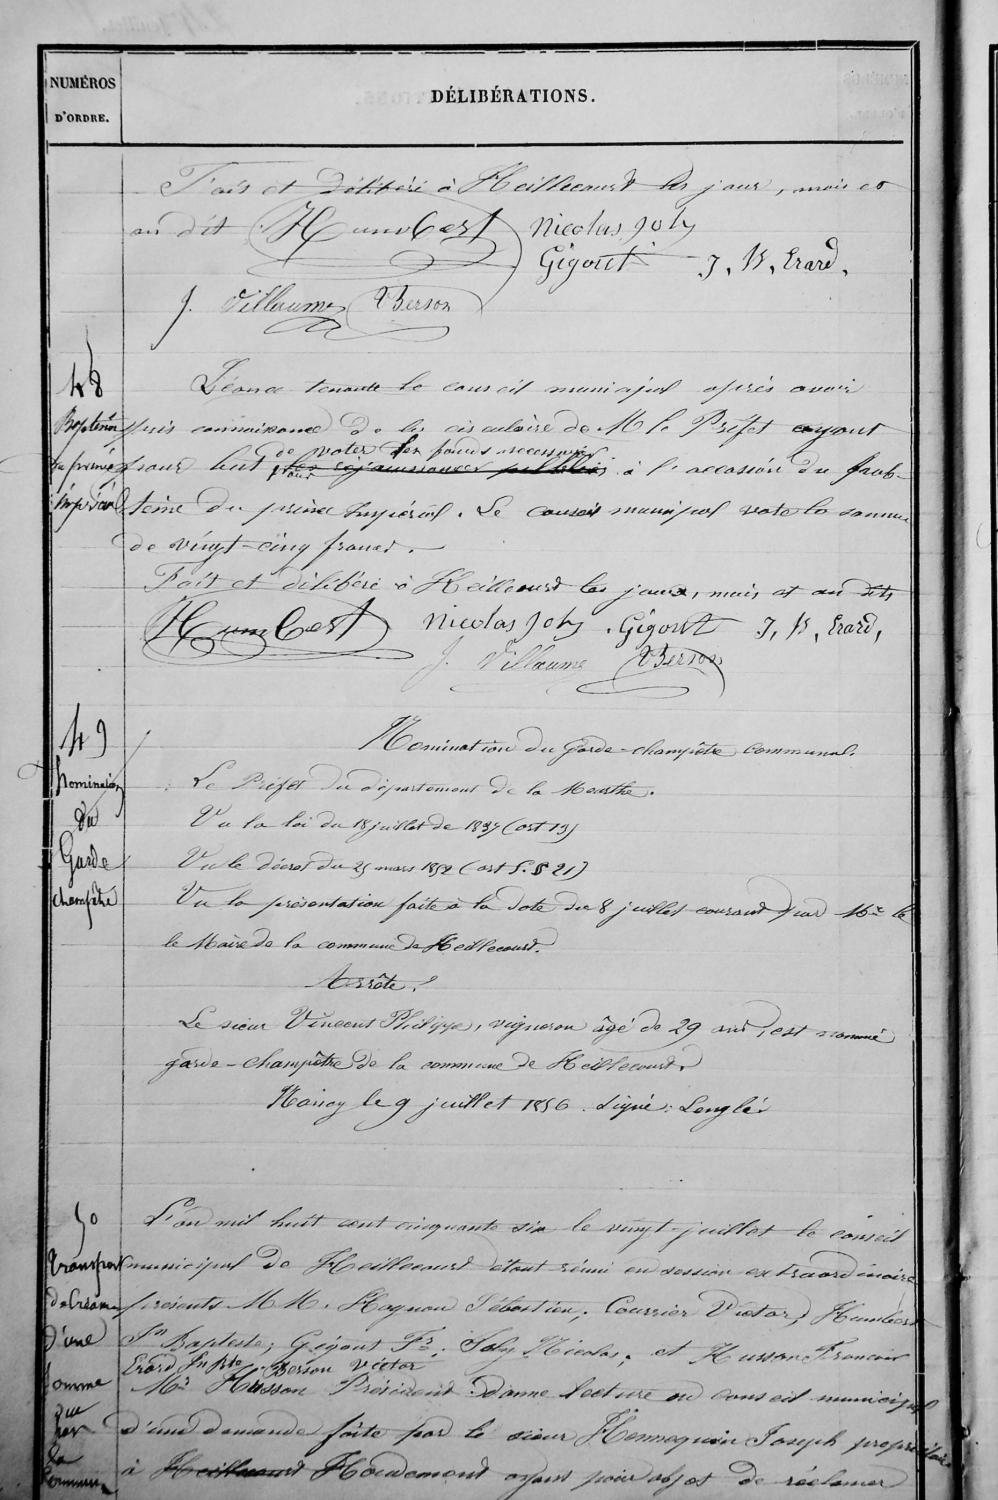 NUMÉROS
D'ORDRE.
DÉLIBÉRATIONS.
Fait et délibéré à Heillecourt les jour, mois et
an dit Humbert Nicolas Joly
Gigout J, B, Erard,
J. Villaume Berson
48
Baptême
du prince
impérial
Séance tenante le conseil municipal après avoir
pris connaissance de la circulaire de M le Préfet ayant
de voter des fonds necessaires
pour but pour les rejouissances publiques à l'occasion du bap-
tême du prince Impérial. Le conseil municipal vote la somme
de vingt-cinq francs.
Fait et délibéré à Heillecourt les jour, mois et an dits
Humbert Nicolas Joly Gigout J, B, Erard,
J. Villaume Berson
49
Nomination
du
Garde
champêtre
Nomination du garde-champêtre communal.
Le Préfet du département de la Meurthe.
Vu la loi du 18 juillet de 1837 (art 13)
Vu le décret du 25 mars 1852 (art 5. § 21)
Vu la présentation faite à la date du 8 juillet courant par Mr le
le Maire de la commune de Heillecourt.
Arrête:
Le sieur Vincent Philippe, vigneron âgé de 29 ans, est nommé
garde-champêtre de la commune de Heillecourt.
Nancy le 9 juillet 1856. signé: Lenglé
50
transport
de créance
d'une
somme
due
par
la
Commune
L'an mil huit cent cinquante six le vingt juillet le conseil
municipal de Heillecourt étant réuni en session extraordinaire
présents MM. Hognon Sébastien; Courrier Victor; Humbert
Jn Bapteste; Gigout Fs; Joly Nicolas; et Husson Francois
Erard Jn Bte, Berson Victor
Mr Husson Président donne lecture au conseil municipal
d'une demande faite par le sieur Hennequin Joseph propriétaire
à Heillecourt Houdemont ayant pour objet de réclamer